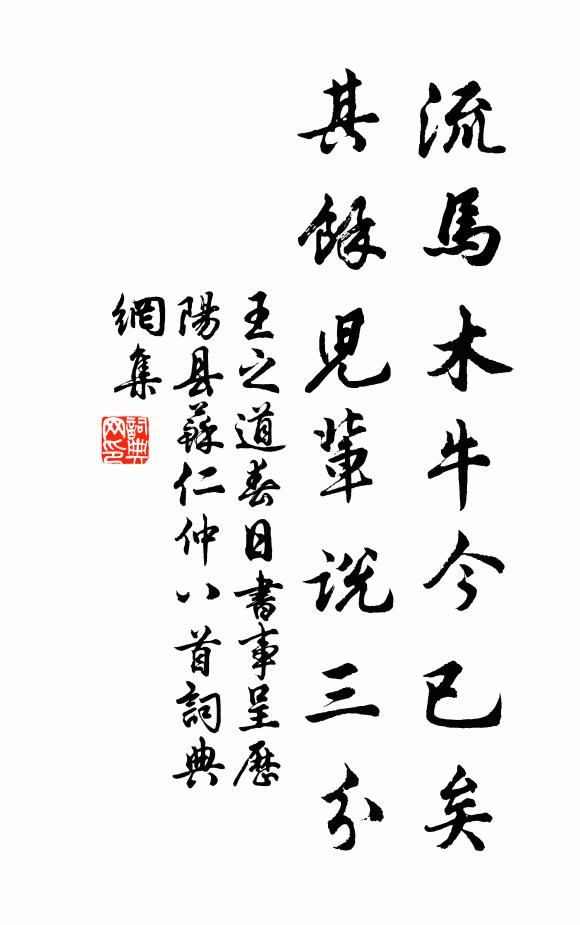 流馬木牛今已矣
其餘児輩説三分
王之道春日書事呈歷
陽县蘇仁仲八首詞典
網集
詞典網印